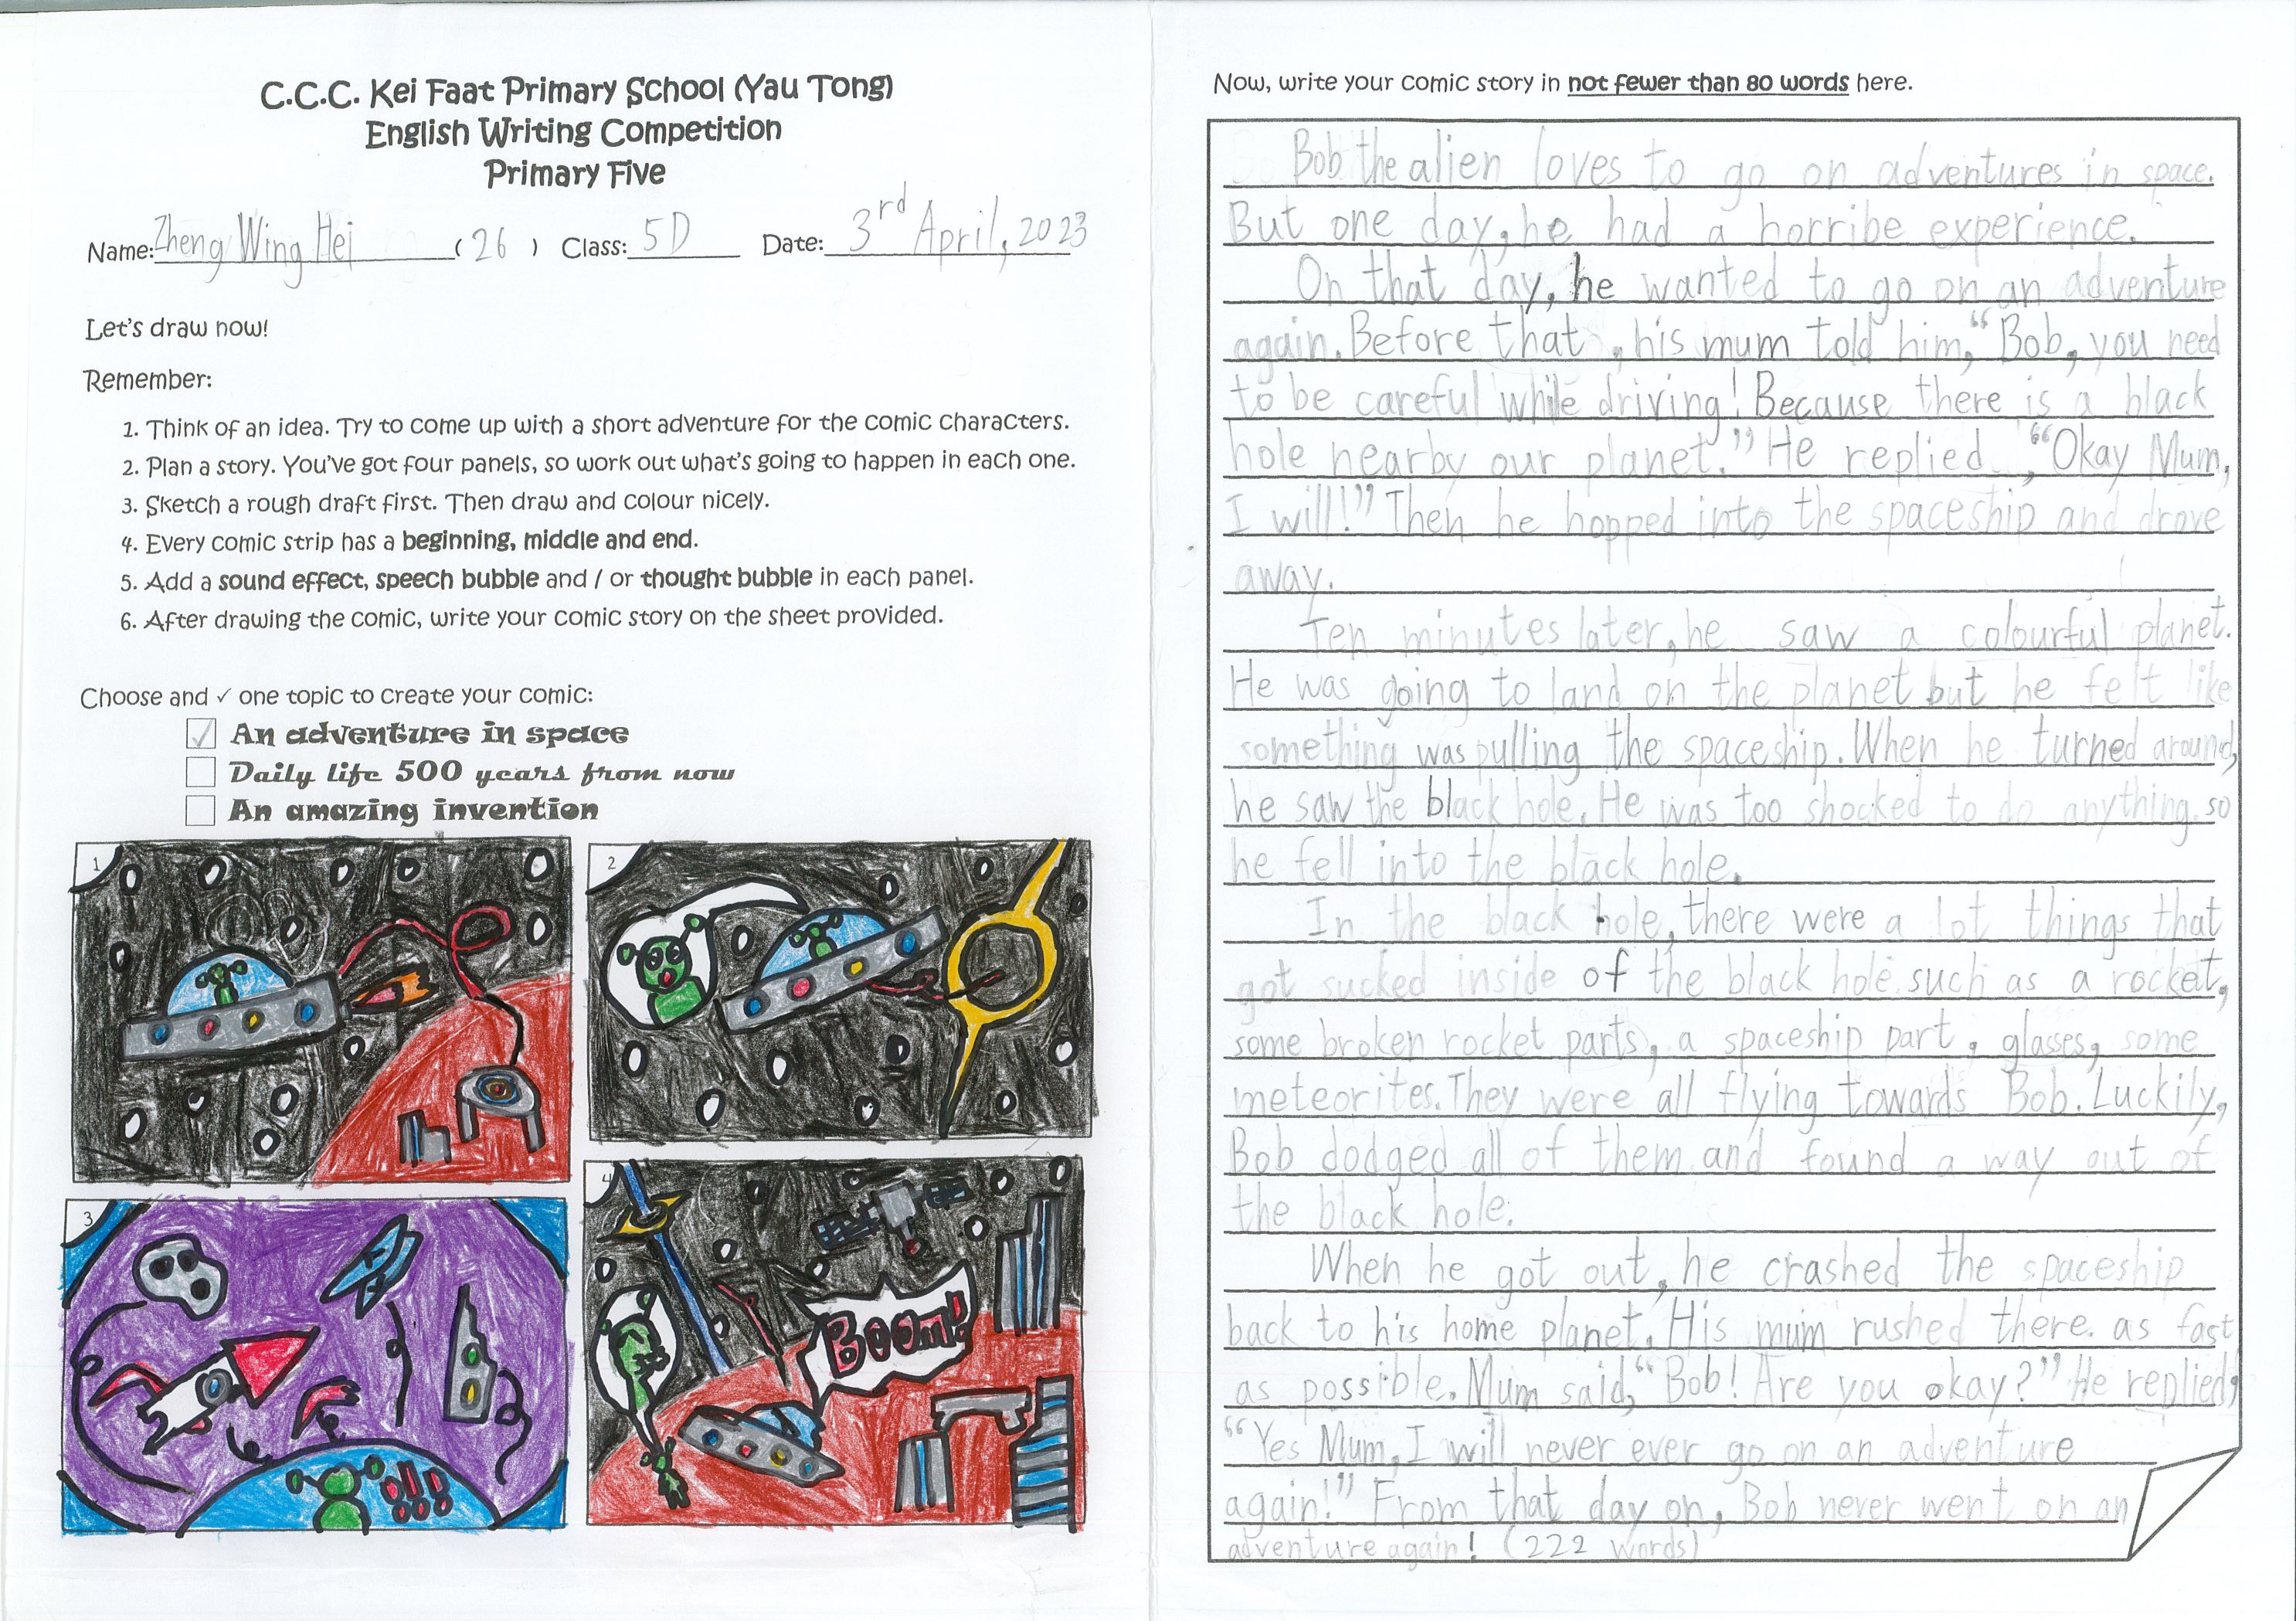 C.C.C. Kei Faat Primary School (Yau Tong)
English Writing Competition
Primary Five
Name: Zheng Wing Hei (26) Class: 5D Date: 3rd April, 2023
Let's draw now!
Remember:
1. Think of an idea. Try to come up with a short adventure for the comic characters.
2. Plan a story. You've got four panels, so work out what's going to happen in each one.
3. Sketch a rough draft first. Then draw and colour nicely.
4. Every comic strip has a beginning, middle and end.
5. Add a sound effect, speech bubble and / or thought bubble in each panel.
6. After drawing the comic, write your comic story on the sheet provided.
Choose and ✓ one topic to create your comic:
✓ An adventure in space
Daily life 500 years from now
An amazing invention
1
2
3
!!!
4
BOOM!
Now, write your comic story in not fewer than 80 words here.
Bob the alien loves to go on adventures in space.
But one day, he had a horribe experience.
On that day, he wanted to go on an adventure
again. Before that, his mum told him, "Bob, you need
to be careful while driving! Because there is a black
hole nearby our planet." He replied, "Okay Mum,
I will!" Then he hopped into the spaceship and drove
away.
Ten minutes later, he saw a colourful planet.
He was going to land on the planet but he felt like
something was pulling the spaceship. When he turned around,
he saw the black hole. He was too shocked to do anything so
he fell into the black hole.
In the black hole, there were a lot things that
got sucked inside of the black hole such as a rocket,
some broken rocket parts, a spaceship part, glasses, some
meteorites. They were all flying towards Bob. Luckily,
Bob dodged all of them and found a way out of
the black hole.
When he got out, he crashed the spaceship
back to his home planet. His mum rushed there as fast
as possible. Mum said, "Bob! Are you okay?" He replied,
"Yes Mum, I will never ever go on an adventure
again!" From that day on, Bob never went on an
adventure again! (222 words)